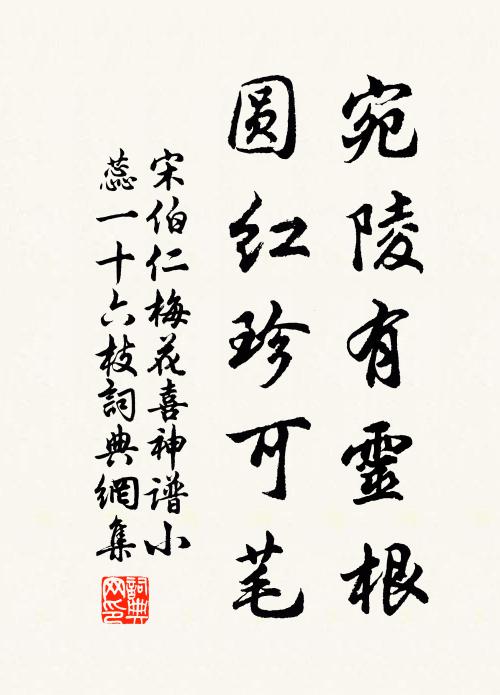 宛陵有靈根
圆红珍可芼
宋伯仁梅花喜神谱小
蕊一十六枝詞典網集
詞典网印